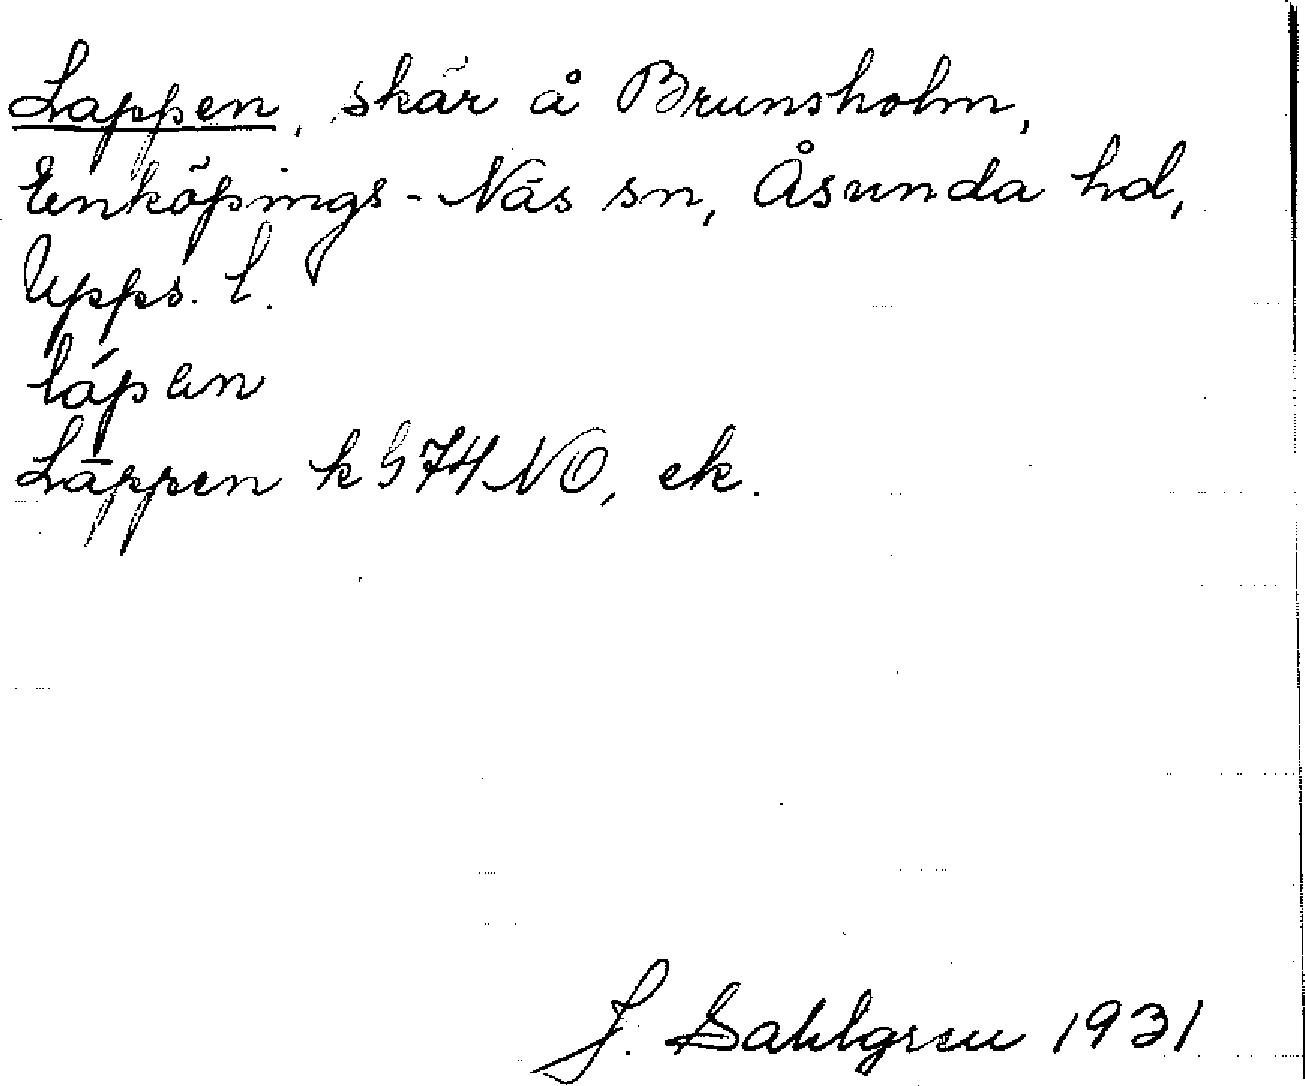 Lappen, skär å Brunsholm,
Enköpings-Näs sn, Åsunda hd,
Upps. l.
lápen
Läppen k § 74 NO, ek.
J. Sahlgren 1931